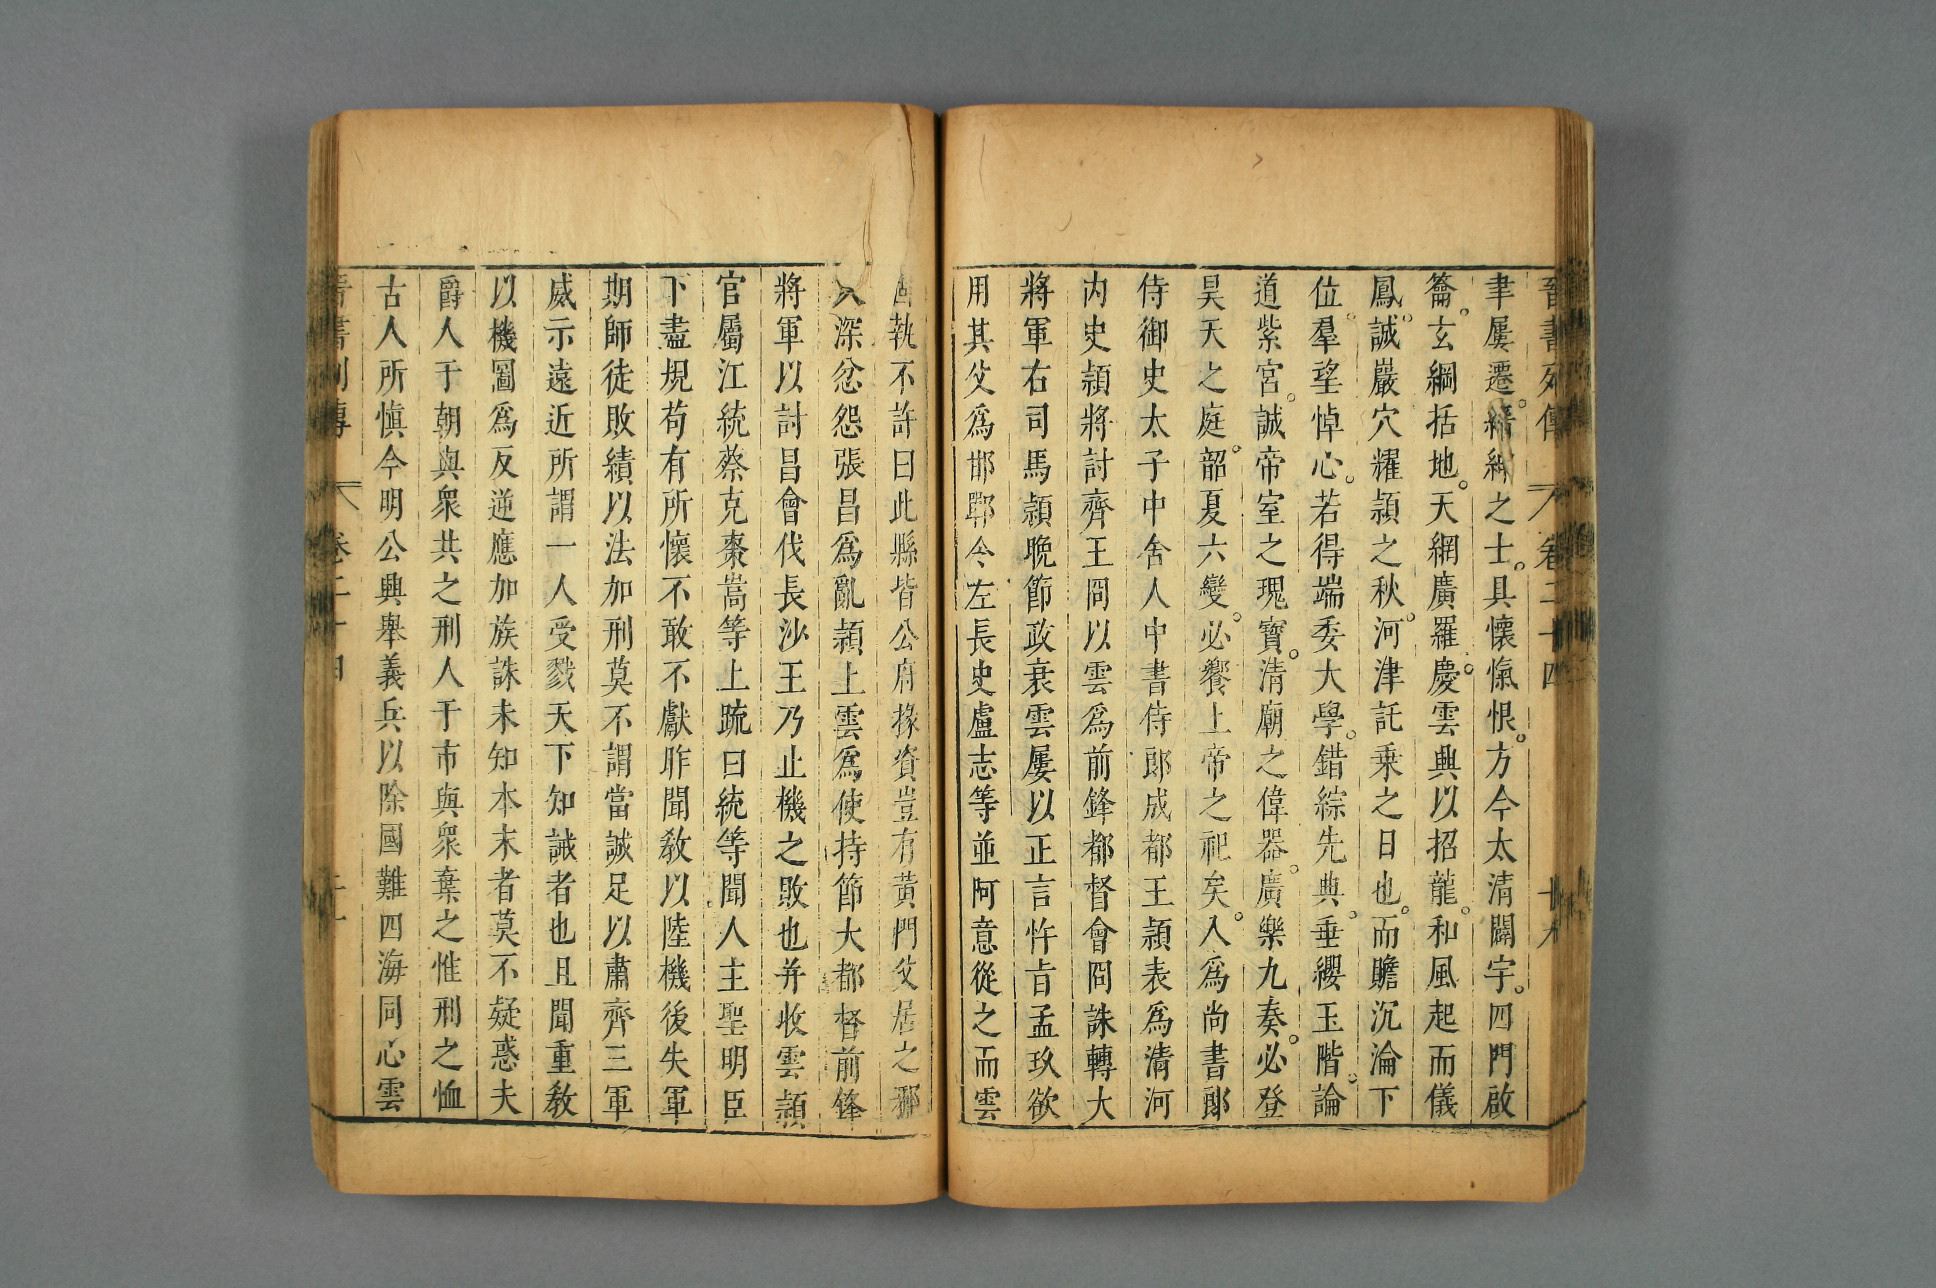 晉書列傳 卷二十四 十九
聿屢遷縉紳之士具懷愾恨方今太清闢宇四門啟
籥玄綱括地天網廣羅慶雲興以招龍和風起而儀
鳳誠嚴穴耀頴之秋河津託乘之日也而贍沉淪下
位羣望悼心若得端委大學錯綜先典垂纓玉階論
道紫宮誠帝室之瑰寶清廟之偉器廣樂九奏必登
昊天之庭韶夏六變必饗上帝之祀矣入爲尚書郞
侍御史太子中舍人中書侍郎成都王頴表爲清河
內史頴將討齊王冏以雲爲前鋒都督會冏誅轉大
將軍右司馬頴晚節政衰雲屢以正言忤旨孟玖欲
用其父爲邯鄲令左長史盧志等並阿意從之而雲
固執不許曰此縣皆公府掾資豈有黃門父居之邪
深忿怨張昌爲亂頴上雲爲使持節大都督前鋒
將軍以討昌會伐長沙王乃止機之敗也并收雲頴
官屬江統蔡克棗嵩等上疏曰統等聞人主聖明臣
下盡規苟有所懷不敢不獻昨聞教以陸機後失軍
期師徒敗績以法加刑莫不謂當誠足以肅齊三軍
威示遠近所謂一人受戮天下知誡者也且聞重教
以機圖爲反逆應加族誅未知本末者莫不疑惑夫
爵人于朝與眾共之刑人于市與眾棄之惟刑之恤
古人所慎今明公興舉義兵以除國難四海同心雲
晉書列傳 卷二十四